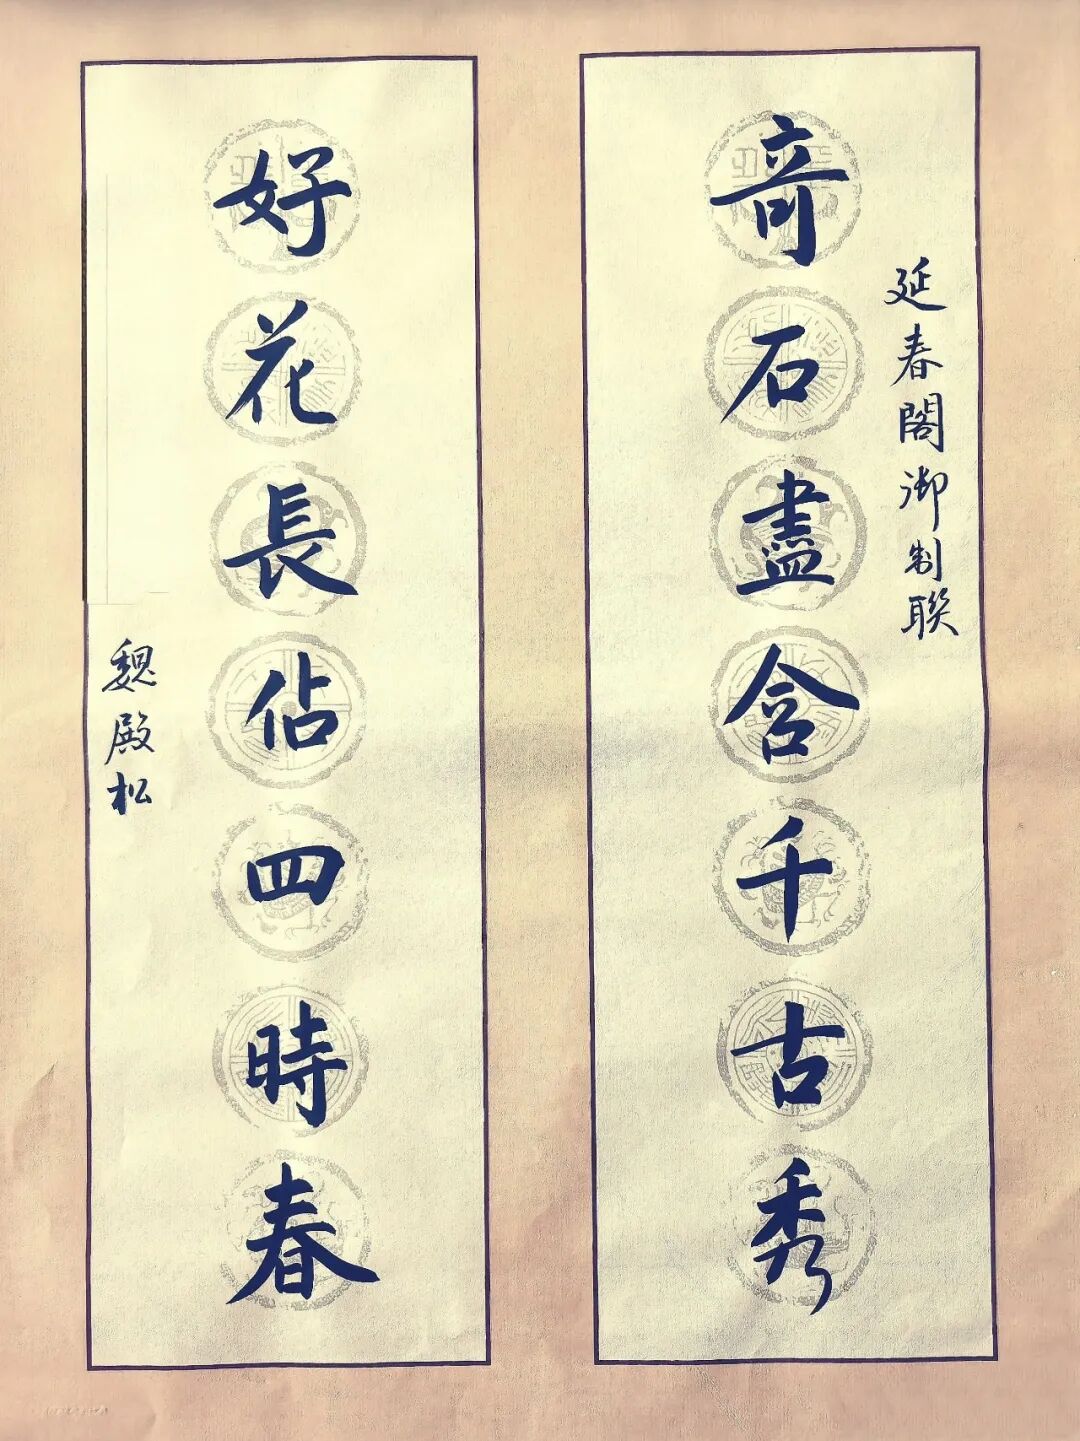 延春閣御制聯
奇石盡含千古秀
好花長佔四時春
魏殿松